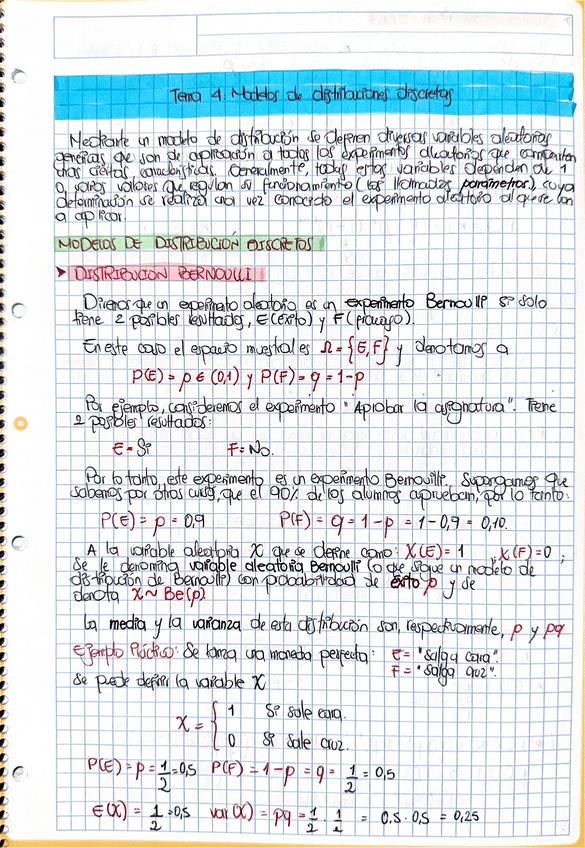 Tema 4. Modelos de distribuciones discretas
Mediante un modelo de distribución se definen diversas variables aleatorias
genéricas que son de aplicación a todos los experimentos aleatorios que comparten
unas ciertas características. Generalmente, todas estas variables dependen de 1
o varios valores que regulan su funcionamiento (los llamados parámetros), cuya
determinación se realiza una vez conocido el experimento aleatorio al que se van
a aplicar.
MODELOS DE DISTRIBUCIÓN DISCRETOS
➤ DISTRIBUCIÓN BERNOULLI
Diremos que un experimento aleatorio es un experimento Bernoulli si solo
tiene 2 posibles resultados, E (éxito) y F (fracaso).
En este caso el espacio muestral es Ω = {E,F} y denotamos a
P(E) = p ∈ (0,1) y P(F) = q = 1-p
Por ejemplo, consideremos el experimento "Aprobar la asignatura". Tiene
2 posibles resultados:
E = Sí F = No.
Por lo tanto, este experimento es un experimento Bernouilli. Supongamos que
sabemos por otros cursos, que el 90% de los alumnos aprueban, por lo tanto:
P(E) = p = 0,9 P(F) = q = 1-p = 1-0,9 = 0,10.
A la variable aleatoria X que se define como: X(E) = 1 , X(F) = 0 ;
se le denomina variable aleatoria Bernoulli (o que sigue un modelo de
distribución de Bernoulli) con probabilidad de éxito p y se
denota X ~ Be(p).
La media y la varianza de esta distribución son, respectivamente, p y pq
Ejemplo Práctico: Se lanza una moneda perfecta: E = "Salga cara".
F = "Salga cruz".
Se puede definir la variable X
X = { 1 Si sale cara.
0 Si sale cruz.
P(E) = p = 1/2 = 0,5 P(F) = 1-p = q = 1/2 = 0,5
E(X) = 1/2 = 0,5 var(X) = pq = 1/2 · 1/2 = 0.5 · 0,5 = 0,25